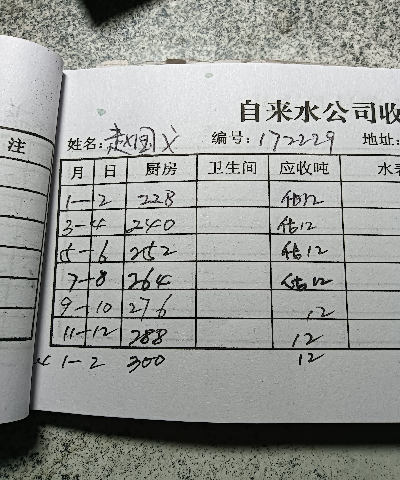 自来水公司收
姓名: 赵国义 编号: 172229 地址:
注 月 日 厨房 卫生间 应收吨 水
1-2 228 估12
3-4 240 估12
5-6 252 估12
7-8 264 估12
9-10 276 12
11-12 288 12
1-2 300 12